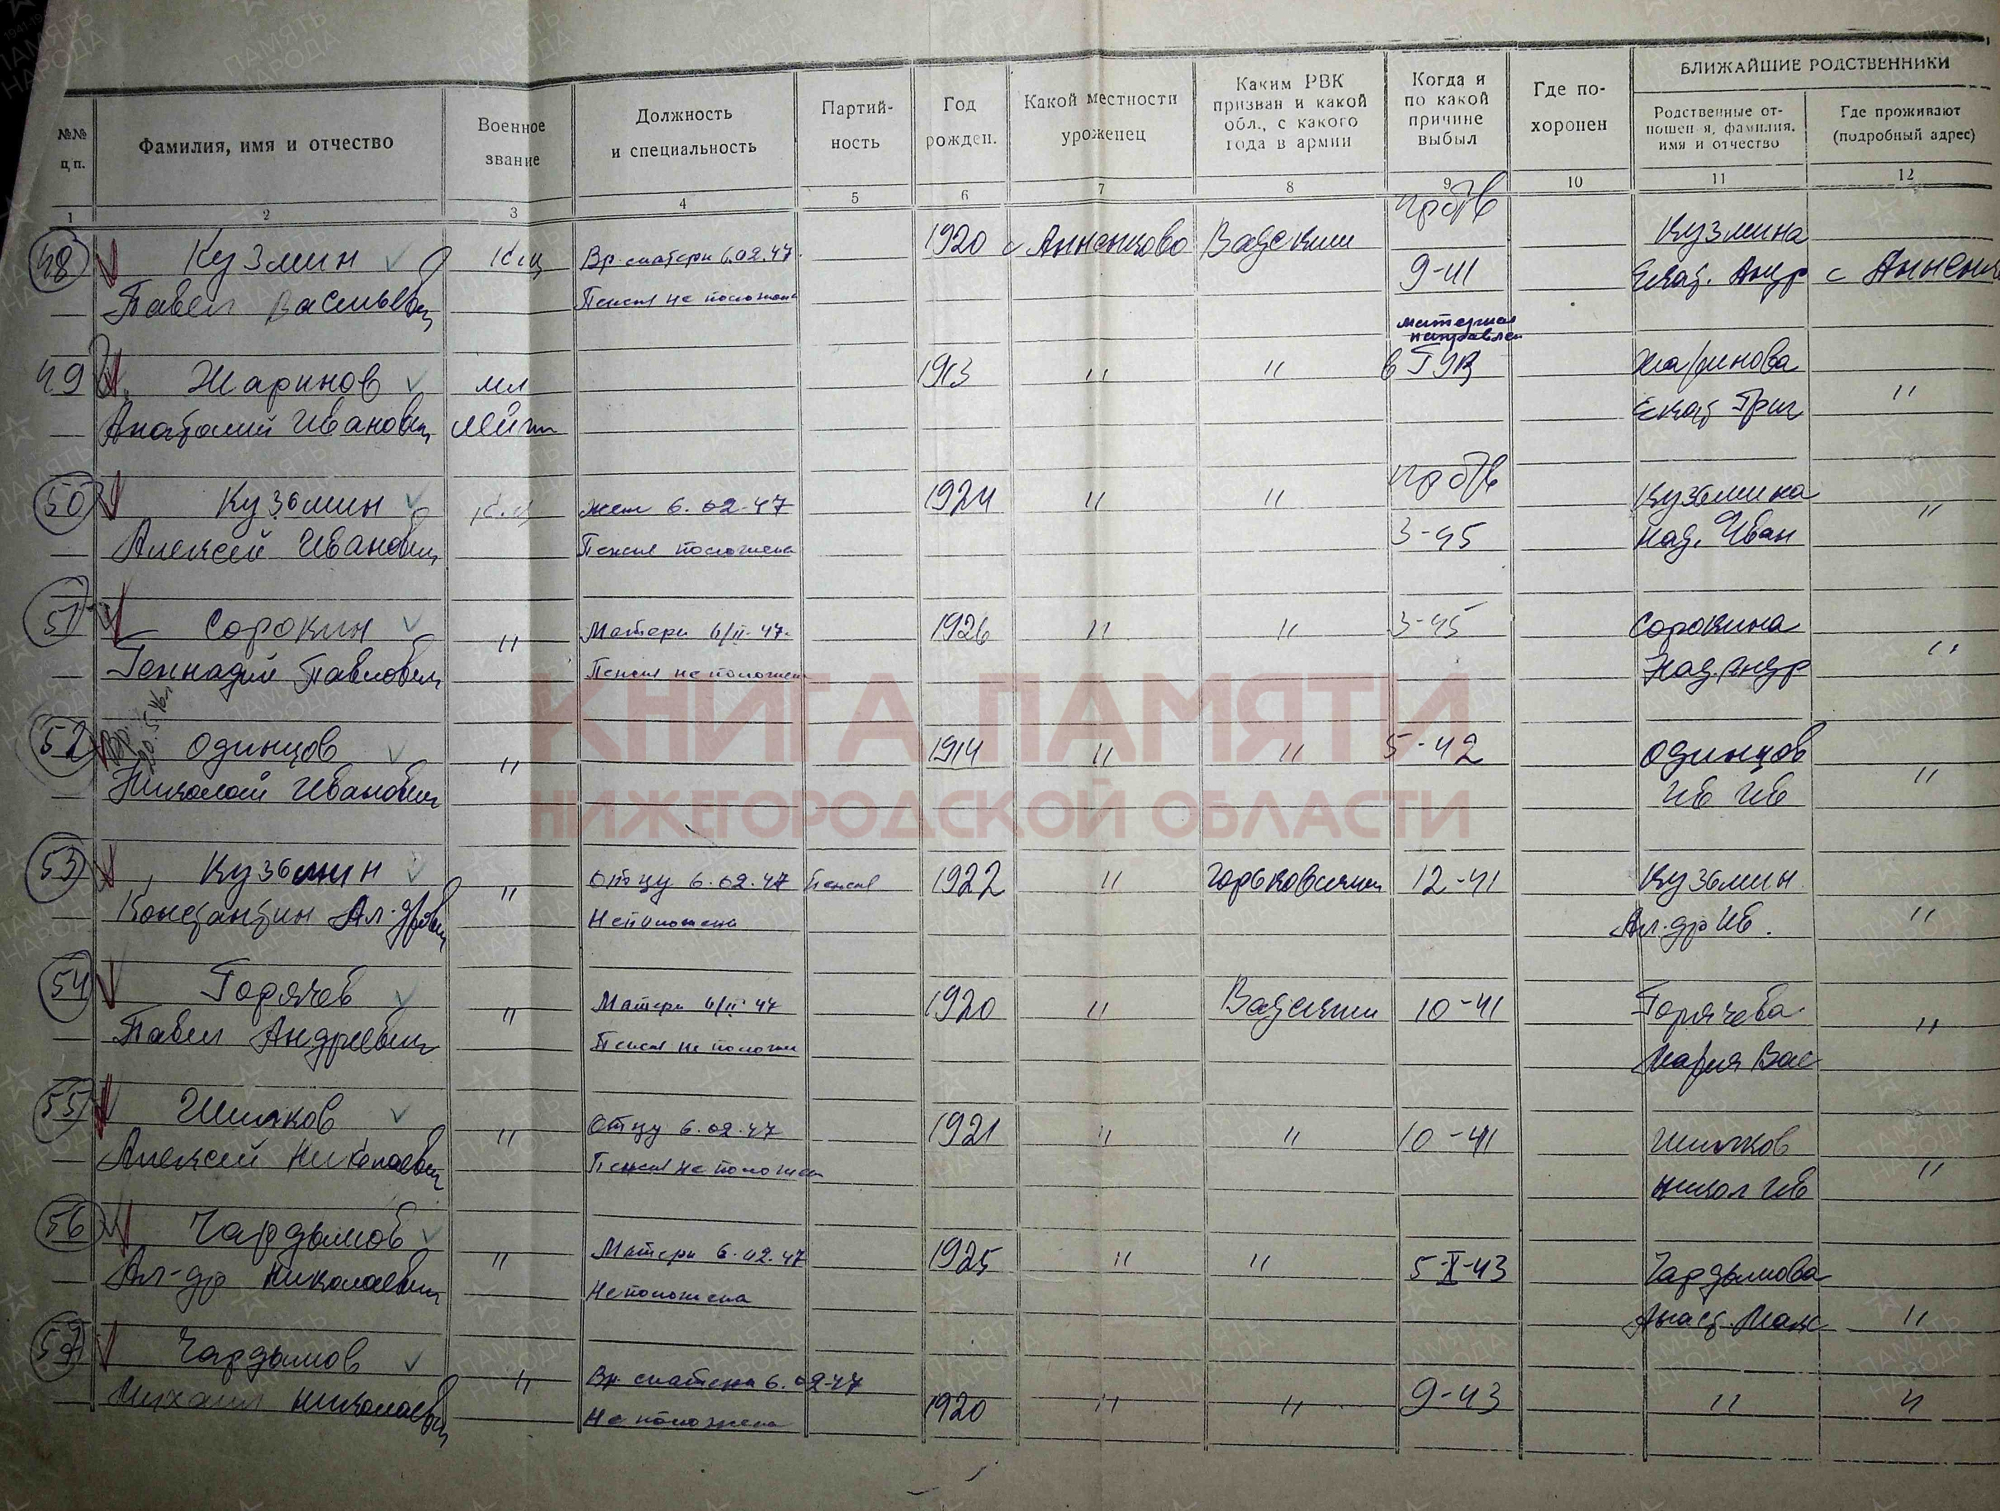 БЛИЖАЙШИЕ РОДСТВЕННИКИ
№№ п.п.
Фамилия, имя и отчество
Военное звание
Должность и специальность
Партий-ность
Год рожден.
Какой местности уроженец
Каким РВК призван и какой обл., с какого года в армии
Когда и по какой причине выбыл
Где по-хоронен
Родственные от-ношен я, фамилия, имя и отчество
Где проживают (подробный адрес)
1 2 3 4 5 6 7 8 9 10 11 12
48 Кузмин 1920 с Анненково Вадским Кузмина
Павел Васильевич Пенсия не положена 9-41 Екат. Андр
материал направлен
49 Жаринов мл 1913 " " в ГУК Жаринова "
Анатолий Иванович лейт Екат Григ
50 Кузьмин Жене 6.02.47 1924 " " Кузьмина "
Алексей Иванович Пенсия положена 3-45 Над. Иван
51 Сорокин " Матери 6/II-47 1926 " " 3-45 Сорокина "
Геннадий Павлович Пенсия не положен Над. Андр
52 Одинцов " 1914 " " 5-42 Одинцов "
Николай Иванович Ив Ив
53 Кузьмин " Отцу 6.02.47 Пенсия 1922 " Горьковским 12-41 Кузьмин "
Константин Ал-дрович Не положена Ал-др Ив.
54 Горячев " Матери 6/II-47 1920 " Вадским 10-41 Горячева "
Павел Андреевич Пенсия не положен Мария Вас
55 Шилков " Отцу 6.02.47 1921 " " 10-41 Шилков "
Алексей Николаевич Пенсия не положен Никол Ив
56 Чардымов " Матери 6.02.47 1925 " " 5-X-43 Чардымова
Ал-др Николаевич Не положена "
57 Чардымов " 6.02-47 1920 " " 9-43 " "
Михаил Николаевич Не положена
КНИГА ПАМЯТИ
НИЖЕГОРОДСКОЙ ОБЛАСТИ
ПАМЯТЬ НАРОДА